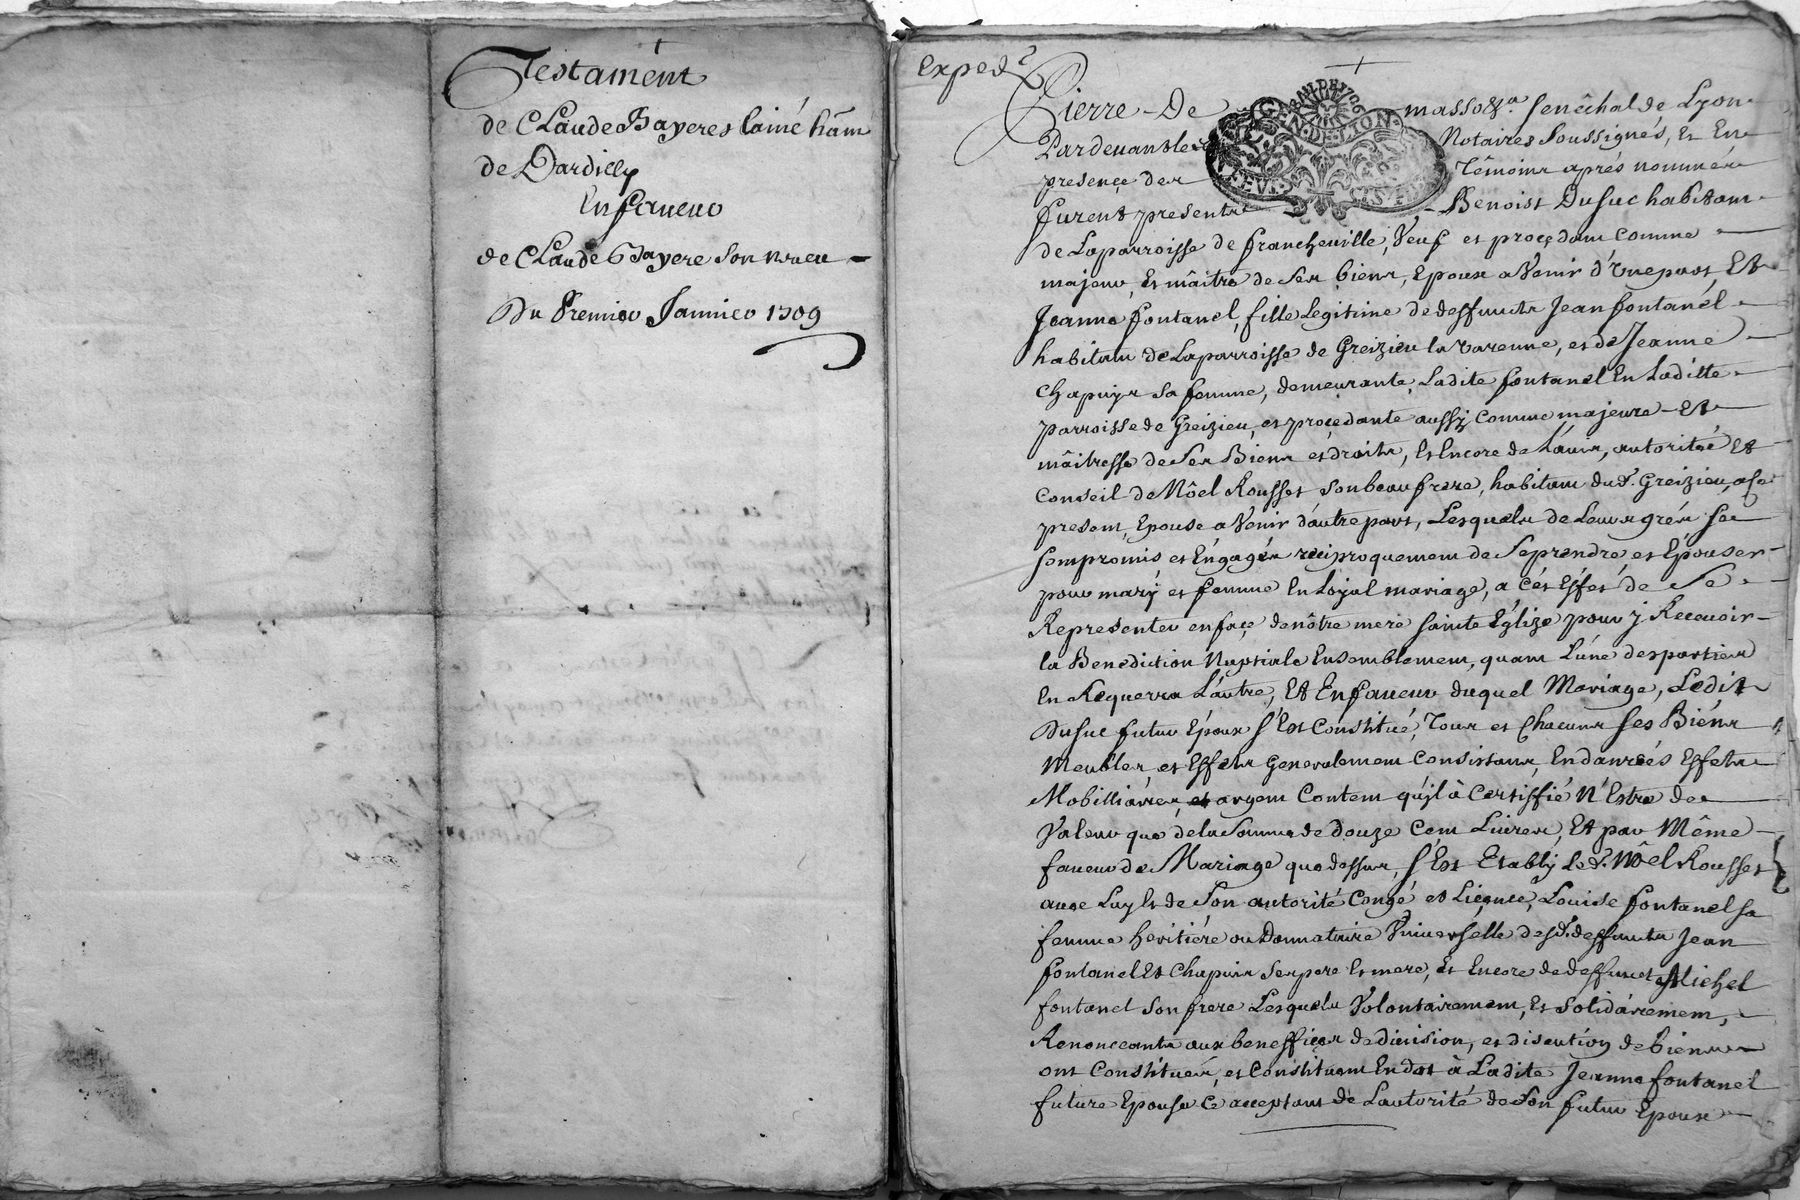 Testament
de CLaude Bayeres lainé ham
de Dardilly
En faueur
de CLaude Bayere Son nueu
Du Premier Januier 1709
Exped.
Pierre De masso Senêchal de Lyon
Pardeuant les Notaires Soussignés, et En
presence des Têmoins aprés nommés
furent presents Benoist Dusuc habitant
de Laparroisse de francheuille, Veuf et proçedant comme
majeur, Et mâitre de Ses biens, Epoux a Venir d'Vne part, Et
Jeanne fontanel, fille Legitime de deffuncts Jean fontanel
habitant de Laparroisse de Greizieu la varenne, et de Jeanne
Chapuys sa femme, demeurante, Ladite fontanel En Laditte
parroisse de Greizieu, et proçedante aussy comme majeure Et
mâitresse de Ses Biens et droits, Et Encore de L'auis, autorité Et
Conseil de Nôel Rousset Son beaufrere, habitant dud. Greizieu, a ce
present, Epouse a Venir d'autre part, Lesquels de Leurs grés se
Sont promis et Engagés reciproquement de Se prendre, et Epouser
pour mary et femme En Loyal mariage, a cét Effet de Se
Representer en façe de nôtre mere sainte Eglize pour y Receuoir
la Benediction Nuptiale Ensemblement, quant L'une des parties
En Requerra L'autre, Et En faueur duquel Mariage, Ledit
Dusuc futur Epoux s'Est Constitué, Tous et Chacuns ses Biéns
Meubles, et Effets Generalement Consistans, En danrées Effets
Mobilliaires, et argent Content qu'jl à Certiffié N'Estre de
Valeur que de la Somme de douze Cent Liures, Et par Même
faueur de Mariage que dessus, s'Est Etably Led. Nôel Rousset
auec Luy Et de Son autorité Congé et Liçence, Louise fontanel sa
femme heritiére ou Donnataire Vniuerselle desd. deffuncts Jean
fontanel Et Chapuis Ses pere Et mere, Et Encore de deffunct Michel
fontanel Son frere Lesquels Volontairement, Et Solidairement,
Renonceants aux beneffiçes de diuision, et discution de biens
ont Constitués, et Constituent En dot à Ladite Jeanne fontanel
future Epouse Ce acceptant de Lautorité de Son futur Epoux